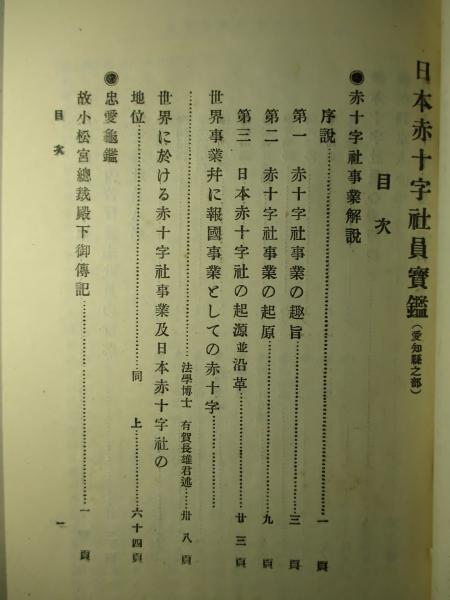 日本赤十字社員寶鑑(愛知縣之部)
目次
◉赤十字社事業解說
序說……一頁
第一 赤十字社事業の趣旨……三頁
第二 赤十字社事業の起原……九頁
第三 日本赤十字社の起源並沿革……廿三頁
世界事業幷に報國事業としての赤十字……
……法學博士 有賀長雄君述…卅八頁
世界に於ける赤十字社事業及日本赤十字社の
地位……同 上…六十四頁
◉忠愛龜鑑
故小松宮總裁殿下御傳記……一頁
目次
一